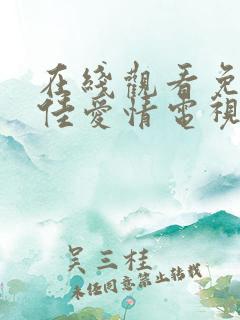 在綫觀看免
佳愛情電視
吴三桂
未经同意禁止转载